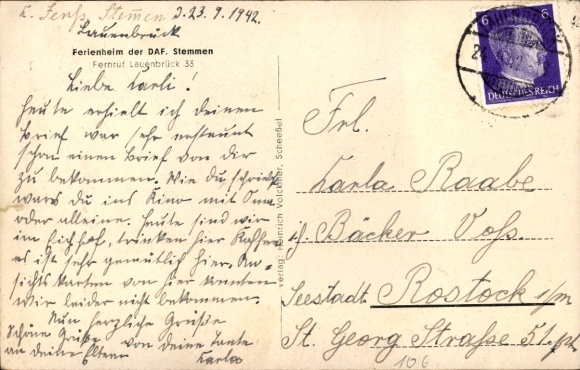 Stemmen d. 23.9.1942.
Lauenbrück
Ferienheim der DAF. Stemmen
Fernruf Lauenbrück 33
Liebe Karli!
Heute erhielt ich deinen
Brief war sehr erstaunt
schon einen Brief von dir
zu bekommen. Wie du schriebst
warst du ins Kino mit Oma
oder alleine. Heute sind wir
im Eichhof, trinken hier Kaffee
es ist sehr gemütlich hier. An-
sichtskarten von hier konnten
wir leider nicht bekommen.
Nun herzliche Grüße
von deine Tante
Karla
Schöne Grüße
an deine Eltern
Verlag: Heinrich Volckmer, Scheeßel
6 6
DEUTSCHES REICH
24
Frl.
Karla Raabe
Bäcker Voß.
Seestadt Rostock i/m
St. Georg Straße 51
106